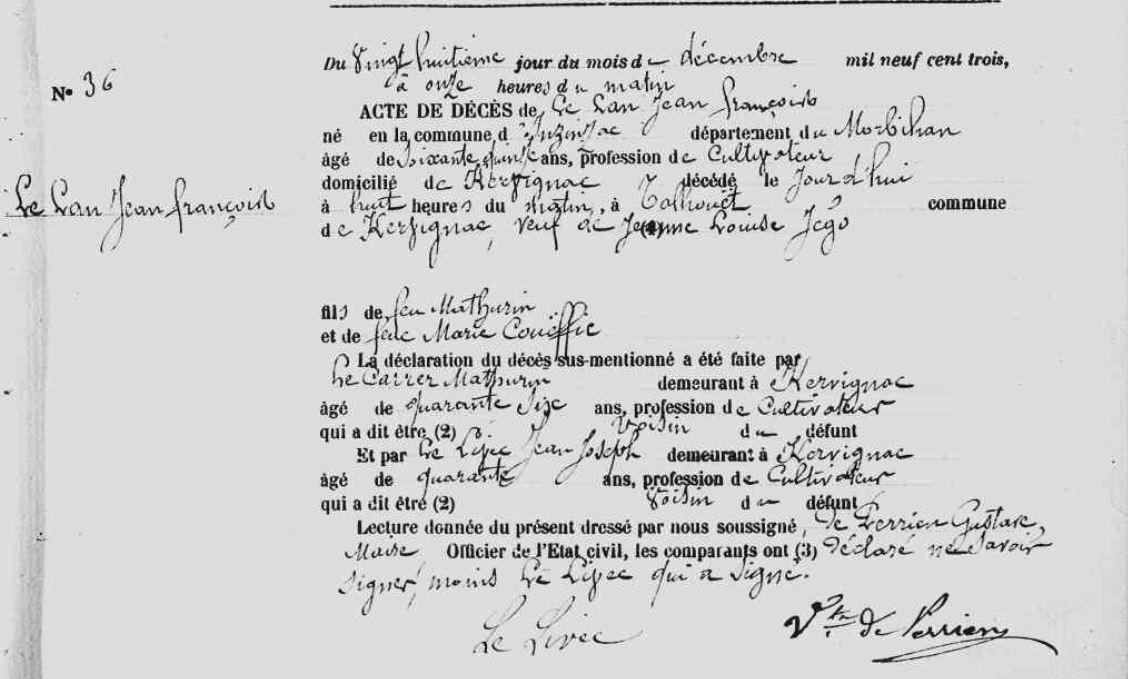 Du Vingt huitième jour du mois de décembre mil neuf cent trois,
N° 36
à onze heures du matin
ACTE DE DÉCÈS de Le Lan Jean françois
né en la commune d'Inzinzac département du Morbihan
âgé de Soixante quinze ans, profession de Cultivateur
Le Lan Jean françois
domicilié de Kervignac décédé le Jour d'hui
à huit heures du matin, à commune
de Kervignac, veuf de Jeanne Louise Jégo
fils de feu Mathurin
et de feue Marie Couëffic
La déclaration du décès sus-mentionné a été faite par
Le Carrer Mathurin demeurant à Kervignac
âgé de quarante Six ans, profession de Cultivateur
qui a dit être (2) Voisin du défunt
Et par Le Livec Jean Joseph demeurant à Kervignac
âgé de quarante ans, profession de Cultivateur
qui a dit être (2) Voisin du défunt
Lecture donnée du présent dressé par nous soussigné, De Perrien Gustave,
Maire Officier de l'Etat civil, les comparants ont (3) déclaré ne savoir
signer, moins Le Livec qui a signé.
Le Livec
Vte de Perrien